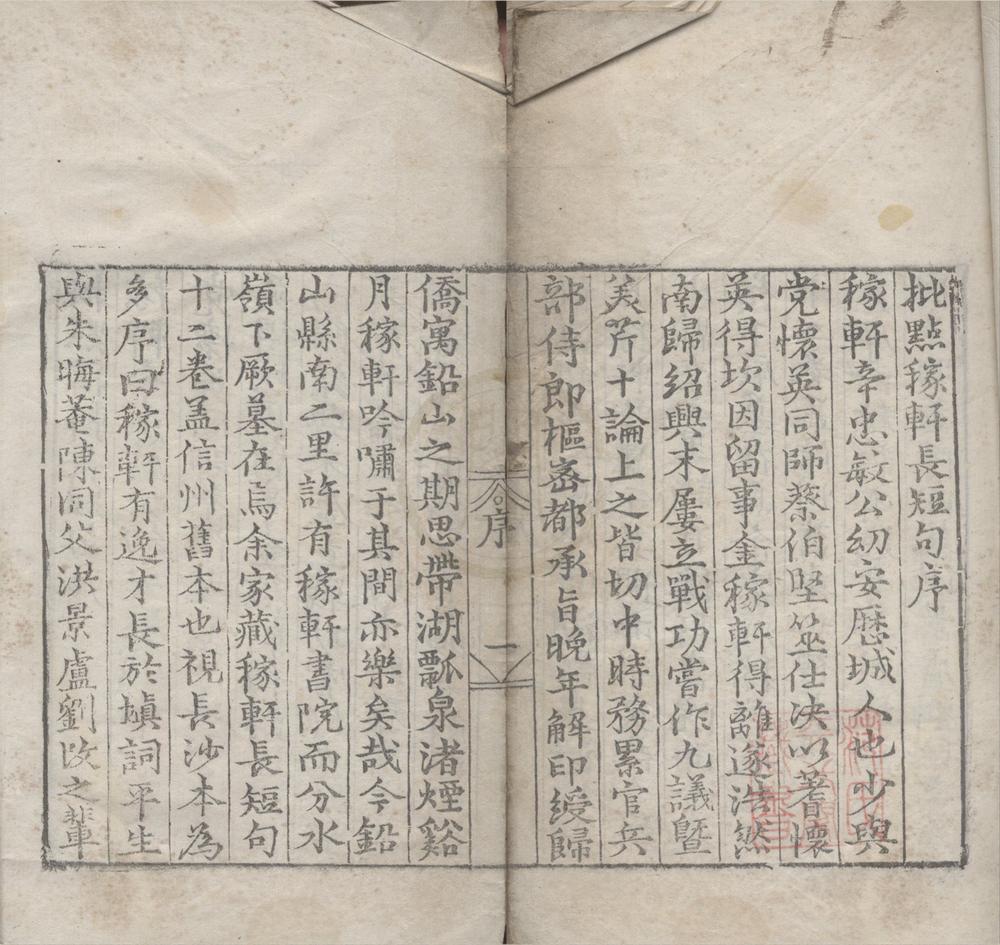 批點稼軒長短句序
稼軒辛忠敏公幼安歷城人也少與
党懷英同師蔡伯堅筮仕决以蓍懷
英得坎因留事金稼軒得離遂浩然
南歸紹興末屢立戰功嘗作九議曁
美芹十論上之皆切中時務累官兵
部侍郎樞密都承旨晚年解印綬歸
序
一
僑寓鉛山之期思帶湖瓢泉渚煙谿
月稼軒吟嘯于其間亦樂矣哉今鉛
山縣南二里許有稼軒書院而分水
嶺下厥墓在焉余家藏稼軒長短句
十二卷盖信州舊本也視長沙本為
多序曰稼軒有逸才長於塡詞平生
與朱晦菴陳同父洪景盧劉攺之輩